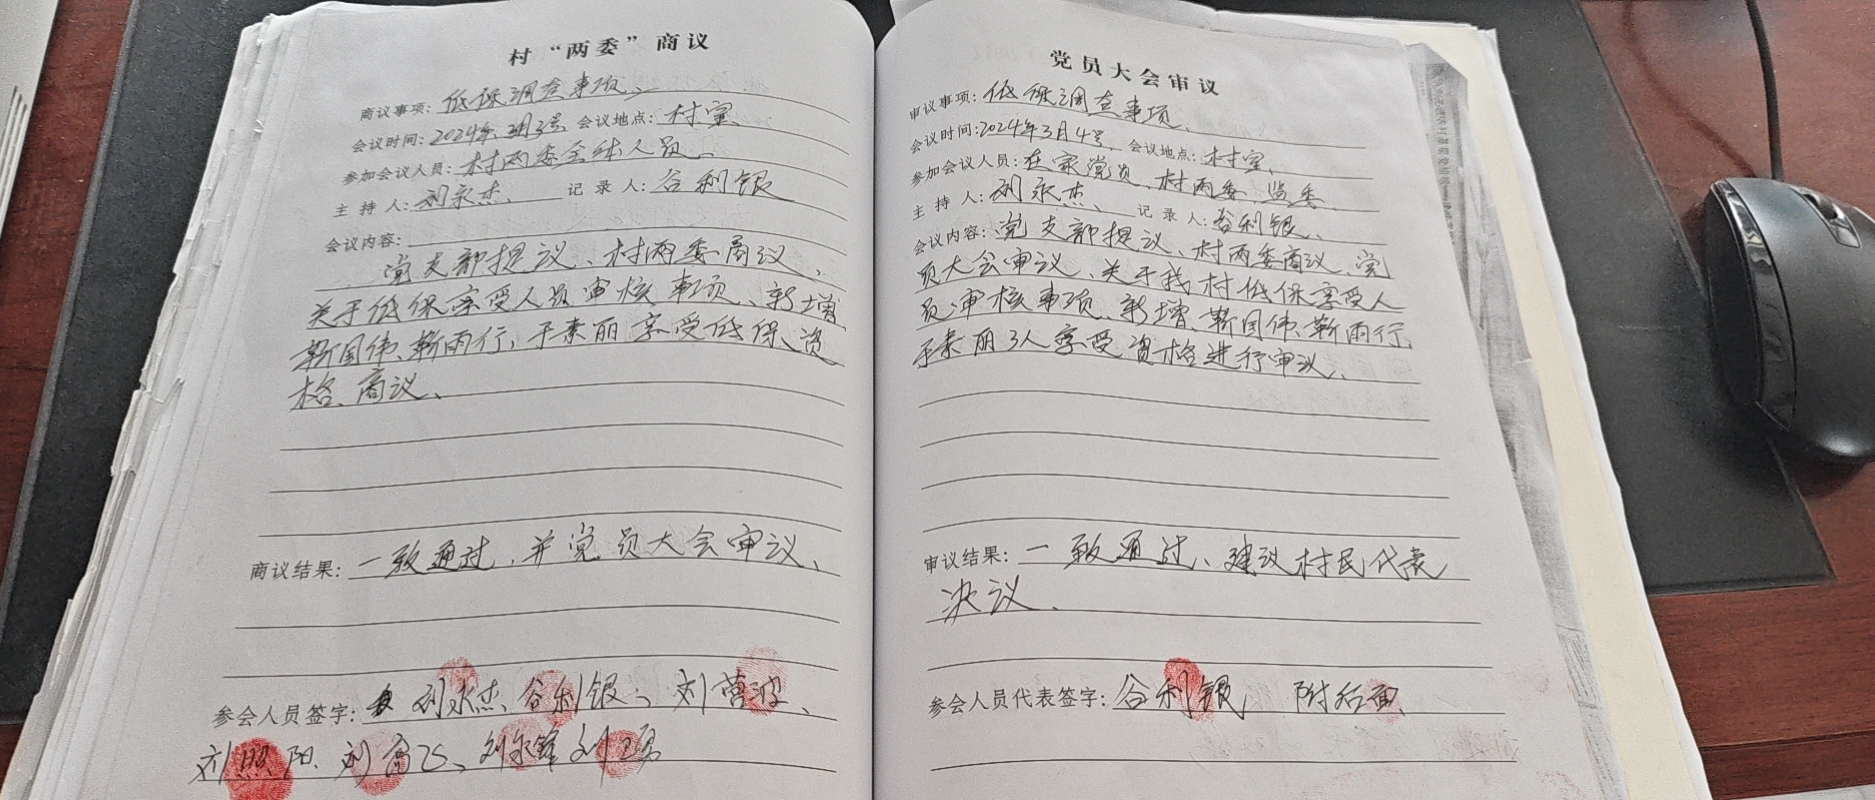 村“两委”商议
商议事项：低保调查事项、
会议时间：2024年3月3号 会议地点：村室
参加会议人员：村两委全体人员、
主持人：刘永杰、 记录人：谷利银
会议内容：
党支部提议、村两委商议、
关于低保享受人员审核事项、新增
靳国伟、靳雨行、于素丽享受低保、资
格、商议、
商议结果：一致通过，并党员大会审议、
参会人员签字：刘永杰、谷利银、刘
刘照阳、刘 刘 刘
党员大会审议
审议事项：低保调查事项、
会议时间：2024年3月4号、会议地点：村室、
参加会议人员：在家党员、村两委、监委、
主持人：刘永杰、 记录人：谷利银、
会议内容：党支部提议、村两委商议、党
员大会审议、关于我村低保享受人
员审核事项、新增、靳国伟、靳雨行、
于素丽3人享受资格进行审议、
审议结果：一致通过、建议村民代表
决议、
参会人员代表签字：谷利银 附后面